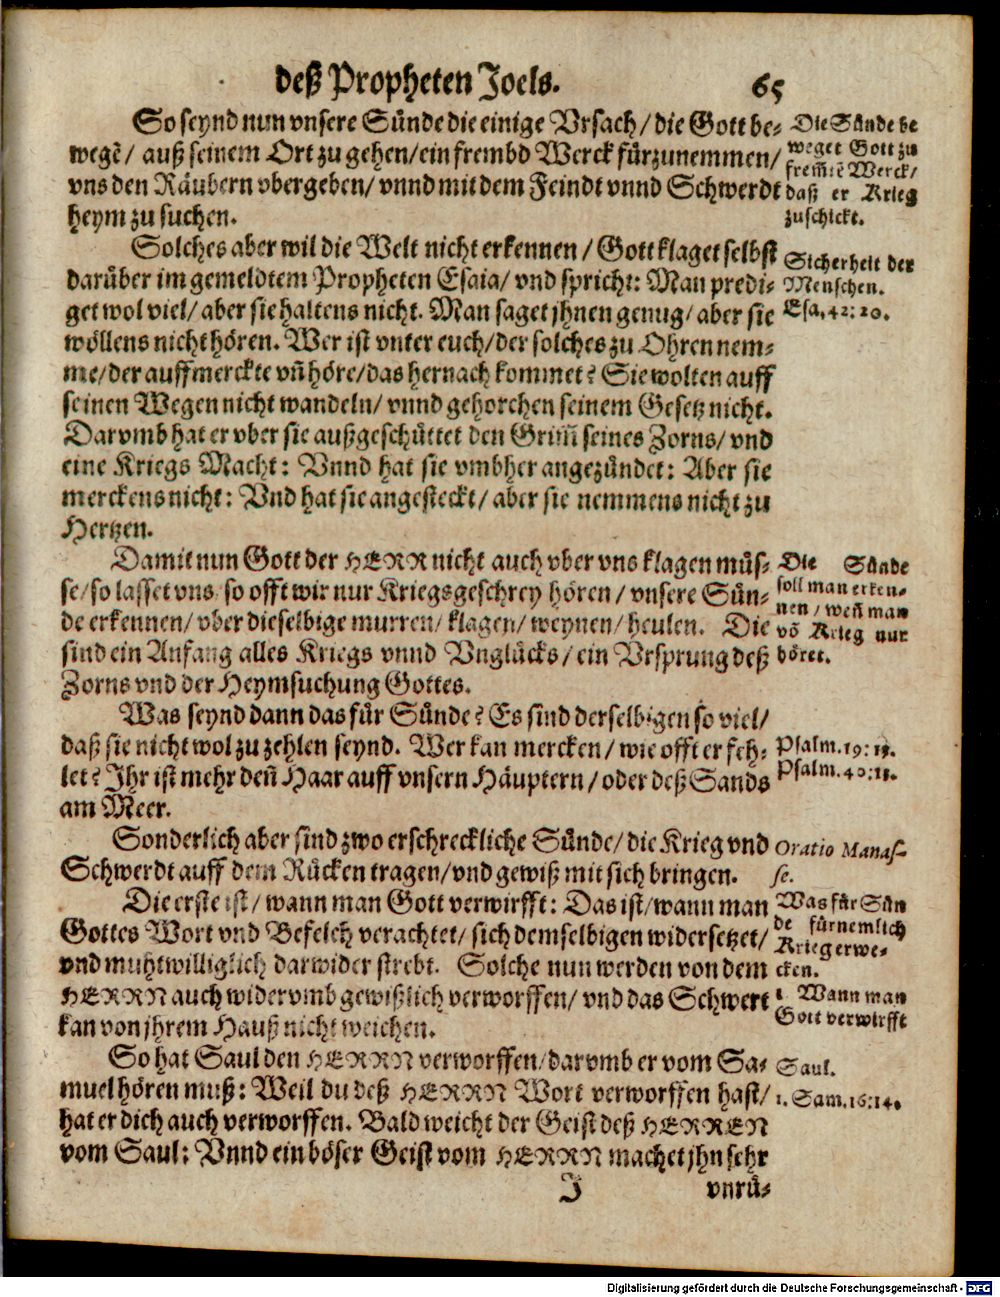 deß Propheten Joels. 65
So seynd nun vnsere Sünde die einige Vrsach/ die Gott be-
wegẽ/ auß seinem Ort zu gehen/ ein frembd Werck fürzunemmen/
vns den Räubern vbergeben/ vnnd mit dem Feindt vnnd Schwerdt
heym zu suchen.
Die Sünde be
weget Gott zu
frem̃ẽ Werck/
daß er Krieg
zuschickt.
Solches aber wil die Welt nicht erkennen/ Gott klaget selbst
darüber im gemeldtem Propheten Esaia/ vnd spricht: Man predi-
get wol viel/ aber sie haltens nicht. Man saget jhnen genug/ aber sie
wöllens nicht hören. Wer ist vnter euch/ der solches zu Ohren nem-
me/ der auffmerckte vñ höre/ das hernach kommet? Sie wolten auff
seinen Wegen nicht wandeln/ vnnd gehorchen seinem Gesetz nicht.
Darvmb hat er vber sie außgeschüttet den Grim̃ seines Zorns/ vnd
eine Kriegs Macht: Vnnd hat sie vmbher angezündet: Aber sie
merckens nicht: Vnd hat sie angesteckt/ aber sie nemmens nicht zu
Hertzen.
Sicherheit der
Menschen.
Esa. 42: 20.
Damit nun Gott der HERR nicht auch vber vns klagen müs-
se/ so lasset vns/ so offt wir nur Kriegsgeschrey hören/ vnsere Sün-
de erkennen/ vber dieselbige murren/ klagen/ weynen/ heulen. Die
sind ein Anfang alles Kriegs vnnd Vnglücks/ ein Vrsprung deß
Zorns vnd der Heymsuchung Gottes.
Die Sünde
soll man erken-
nen/ weñ man
võ Krieg nur
höret.
Was seynd dann das für Sünde? Es sind derselbigen so viel/
daß sie nicht wol zu zehlen seynd. Wer kan mercken/ wie offt er feh-
let? Ihr ist mehr deñ Haar auff vnsern Häuptern/ oder deß Sands
am Meer.
Psalm. 19: 13.
Psalm. 40: 13.
Sonderlich aber sind zwo erschreckliche Sünde/ die Krieg vnd
Schwerdt auff dem Rücken tragen/ vnd gewiß mit sich bringen.
Oratio Manas-
se.
Die erste ist/ wann man Gott verwirfft: Das ist/ wann man
Gottes Wort vnd Befelch verachtet/ sich demselbigen widersetzet/
vnd muhtwilliglich darwider strebt. Solche nun werden von dem
HERRN auch widervmb gewißlich verworffen/ vnd das Schwert
kan von jhrem Hauß nicht weichen.
Was für Sün
de fürnemlich
Krieg erwe-
cken.
1. Wann man
Gott verwirfft
So hat Saul den HERRN verworffen/ darvmb er vom Sa-
muel hören muß: Weil du deß HERRN Wort verworffen hast/
hat er dich auch verworffen. Bald weicht der Geist deß HERREN
vom Saul: Vnnd ein böser Geist vom HERRN machet jhn sehr
Saul.
1. Sam. 16: 14.
J vnrü-
Digitalisierung gefördert durch die Deutsche Forschungsgemeinschaft - DFG